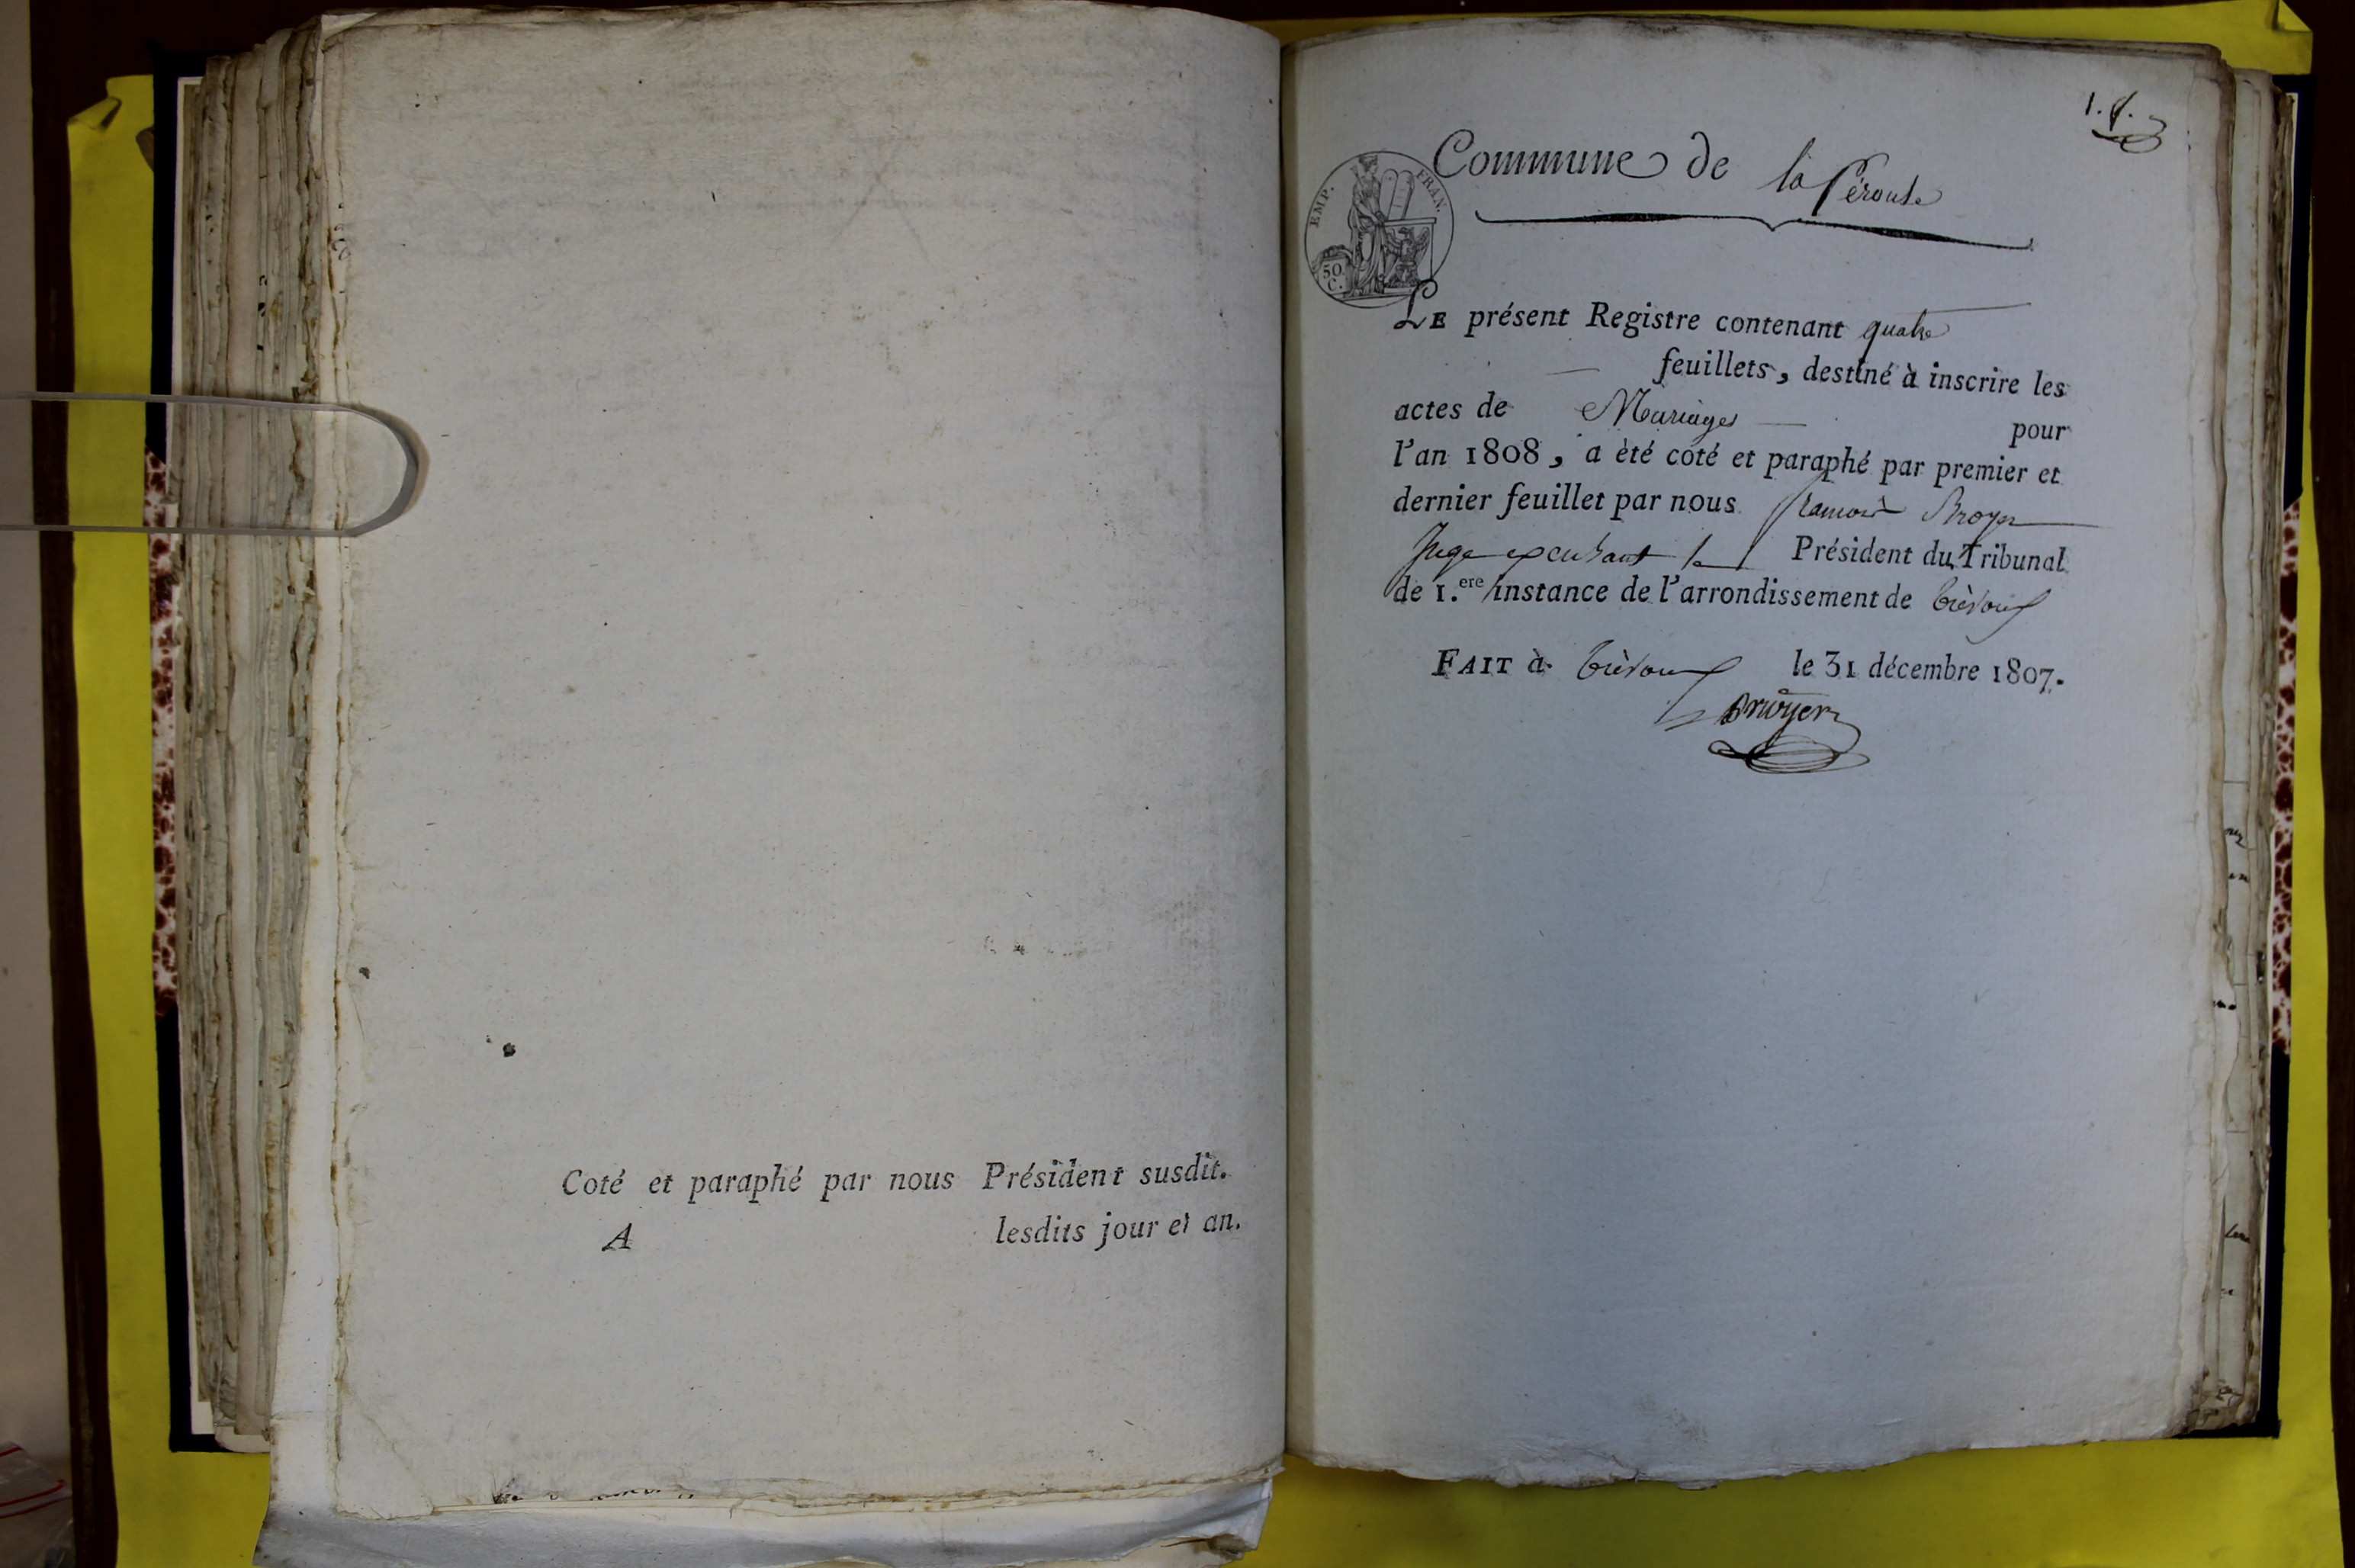 Coté et paraphé par nous Président susdit.
A lesdits jour et an.
1.
Commune de la Pérouse
EMP. FRAN.
50 C.
LE présent Registre contenant quatre
feuillets, destiné à inscrire les
actes de Mariages pour
l'an 1808, a été coté et paraphé par premier et
dernier feuillet par nous françois Broyer
Juge excusant le Président du Tribunal
de 1.ere instance de l'arrondissement de trévoux
FAIT à trévoux le 31 décembre 1807.